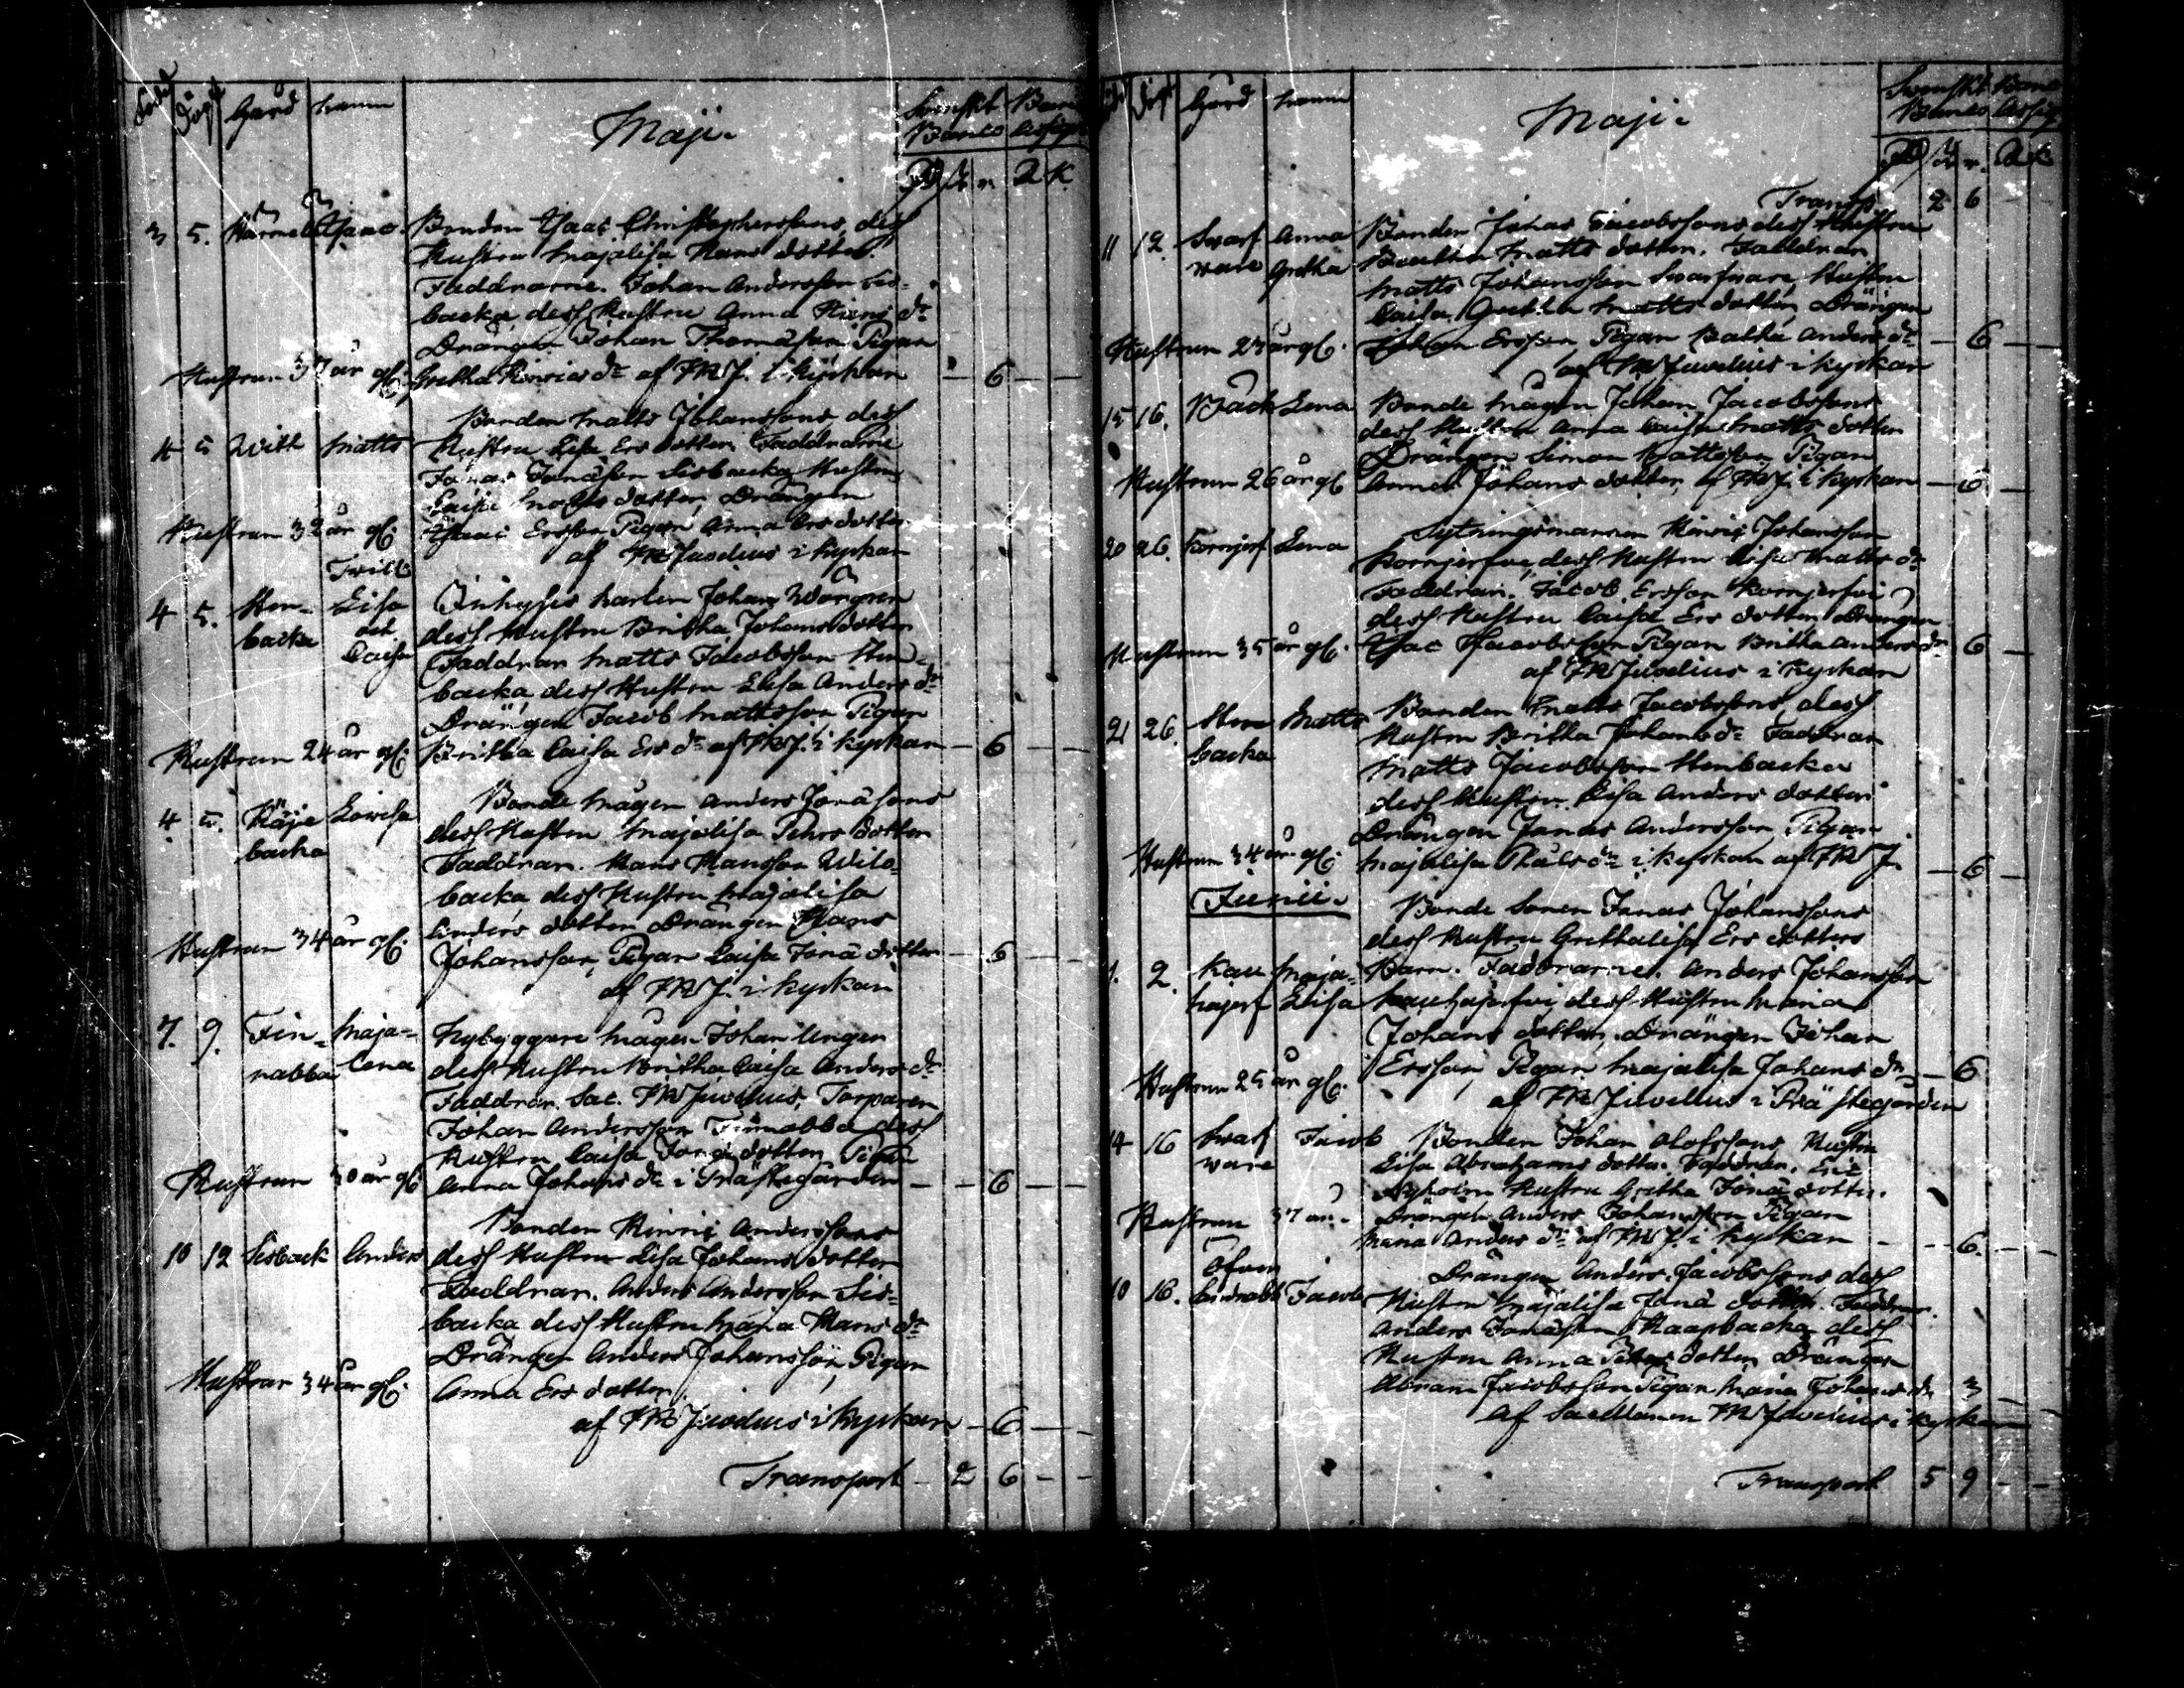 Född Döpt Gård namn
Maji
Svenskt Banco
3 5. Isaac. Bonden Isaac Christophersons, dess
Hustru Majalisa Hans dotter.
Faddrarne. Johan Andersson Sis-
backa dess Hustru Anna Hinrics dr
Drängen Johan Thomasson Pigan
Hustrun 37 år gl. Gretha Hinrics dr af FMJ. i kyrkan — 6 — —
Bonden Matts Johanssons dess
4 5 Witt Matts Hustru Lisa Ers dotter, Faddrarne
Jonas Jonasson Sisbacka Hustru
Caisa Matts dotter, Drängen
Hustrun 32 år gl. Isaac Ersson Pigan Anna Ers dotter
af i kyrkan
Twill.
4 5. Sten- Lisa Inhyses karlen Johan Wargren
backa och dess Hustru Britha Johans dotter
Caisa Faddrar Matts Jacobsson Sten-
backa dess Hustru Lisa Anders dr
Drängen Jacob Mattsson Pigan
Hustrun 24 år gl. Britha Caisa Ers dr af i kyrkan — 6 — —
Bonde mågen Anders Jonasons
4 5. Röje Lovisa dess Hustru Majalisa Pehrs dotter
backa Faddrar. Hans Hansson
backa dess Hustru Majalisa
Anders dotter Drängen Hans
Hustrun 34 år gl. Johansson, Pigan Caisa Jona dotter — 6 — —
af i kyrkan
7. 9. Fin- Maja- Nybyggare mågen Johan Ungern
nabba lena dess Hustru Britha Caisa Anders dr
Faddrar. Sac. Juvelius, Torparen
Johan Andersson Finnabba dess
Hustru Caisa Jona dotter Pigan
Hustrun 30 år gl. Anna Johans dr i Prästegården — — 6 — —
Bonden Hinric Anderssons
10 12 Sisback Anders dess Hustru Lisa Johans dotter
Faddrar. Anders Andersson Sis-
backa dess Hustru Maria Hans dr
Drängen Anders Johansson, Pigan
Hustrun 34 år gl. Anna Ers dotter.
af Juvelius i kyrkan — 6 — —
Transport — 2 6 — —
Född Döpt Gård namn
Maji
Svenskt
Banco
Transp. 2 6
11 12. Svarf Anna Bonden Johan Jacobssons dess Hustru
vare Gretha Matts dotter. Faddrar
Matts Johansson Svarfvare, Hustru
Caisa Gretha Matts dotter, Drängen
Hustrun 23 år gl. Johan Ersson Pigan Anders dr — 6 —
af Juvelius i kyrkan
15 16. Back Lena Bonde mågen Johan Jacobssons
dess Hustru Anna Caisa Matts dotter
Drängen Simon Mattsson Pigan
Hustrun 26 år gl. Anna Johans dotter, af i kyrkan — 6 —
20 26. Kornjerf Lena Sytningsmannen Hinric Johansson
Kornjerfvi, dess Hustru Lisa Matts dr
Faddrar. Jacob Ersson Kornjerfvi
dess Hustru Caisa Ers dotter Drängen
Hustrun 35 år gl. Isac Jacobsson Pigan Britha Anders dr 6 —
af Juvelius i kyrkan
21 26. Sten Matts Bonden Matts Jacobssons dess
backa Hustru Britha Johans dr Faddrar
Matts Jacobsson Stenbacka
dess Hustru Lisa Anders dotter
Drängen Jonas Andersson Pigan
Hustrun 34 år gl. Majalisa Påhls dr i kyrkan af — 6 —
Junii.
Bonde sonen Jonas Johanssons
dess Hustru Grethalisa Ers dotters
1. 2. Kau Maja Barn. Faddrarne. Anders Johansson
hajerf Lisa Kauhajerfvi, dess Hustru Maria
Johans dotter, Drängen Johan
Hustrun 25 år gl. Ersson, Pigan Majalisa Johans dr — 6
af Juvelius i Prästegården
14 16 Svarf Jacob Bonden Johan Olofssons Hustru
vare Lisa Abrahams dotter. Faddrar. Eric
Nyholm Hustru Gretha Jona dotter.
Hustrun 37 år. Drängen Anders Johansson Pigan
Maria Anders dr af i kyrkan — — 6. — —
Öfver
10 16. Jacob Drängen Anders Jacobssons dess
Hustru Majalisa Jona dotter. Faddrar.
Anders Jonasson Kaapbacka dess
Hustru Anna dotter, Drängen
Abram Jacobsson Pigan Maria Johans dr 3 —
af Sacellanen Juvelius i kyrkan
Transport 5 9 — —